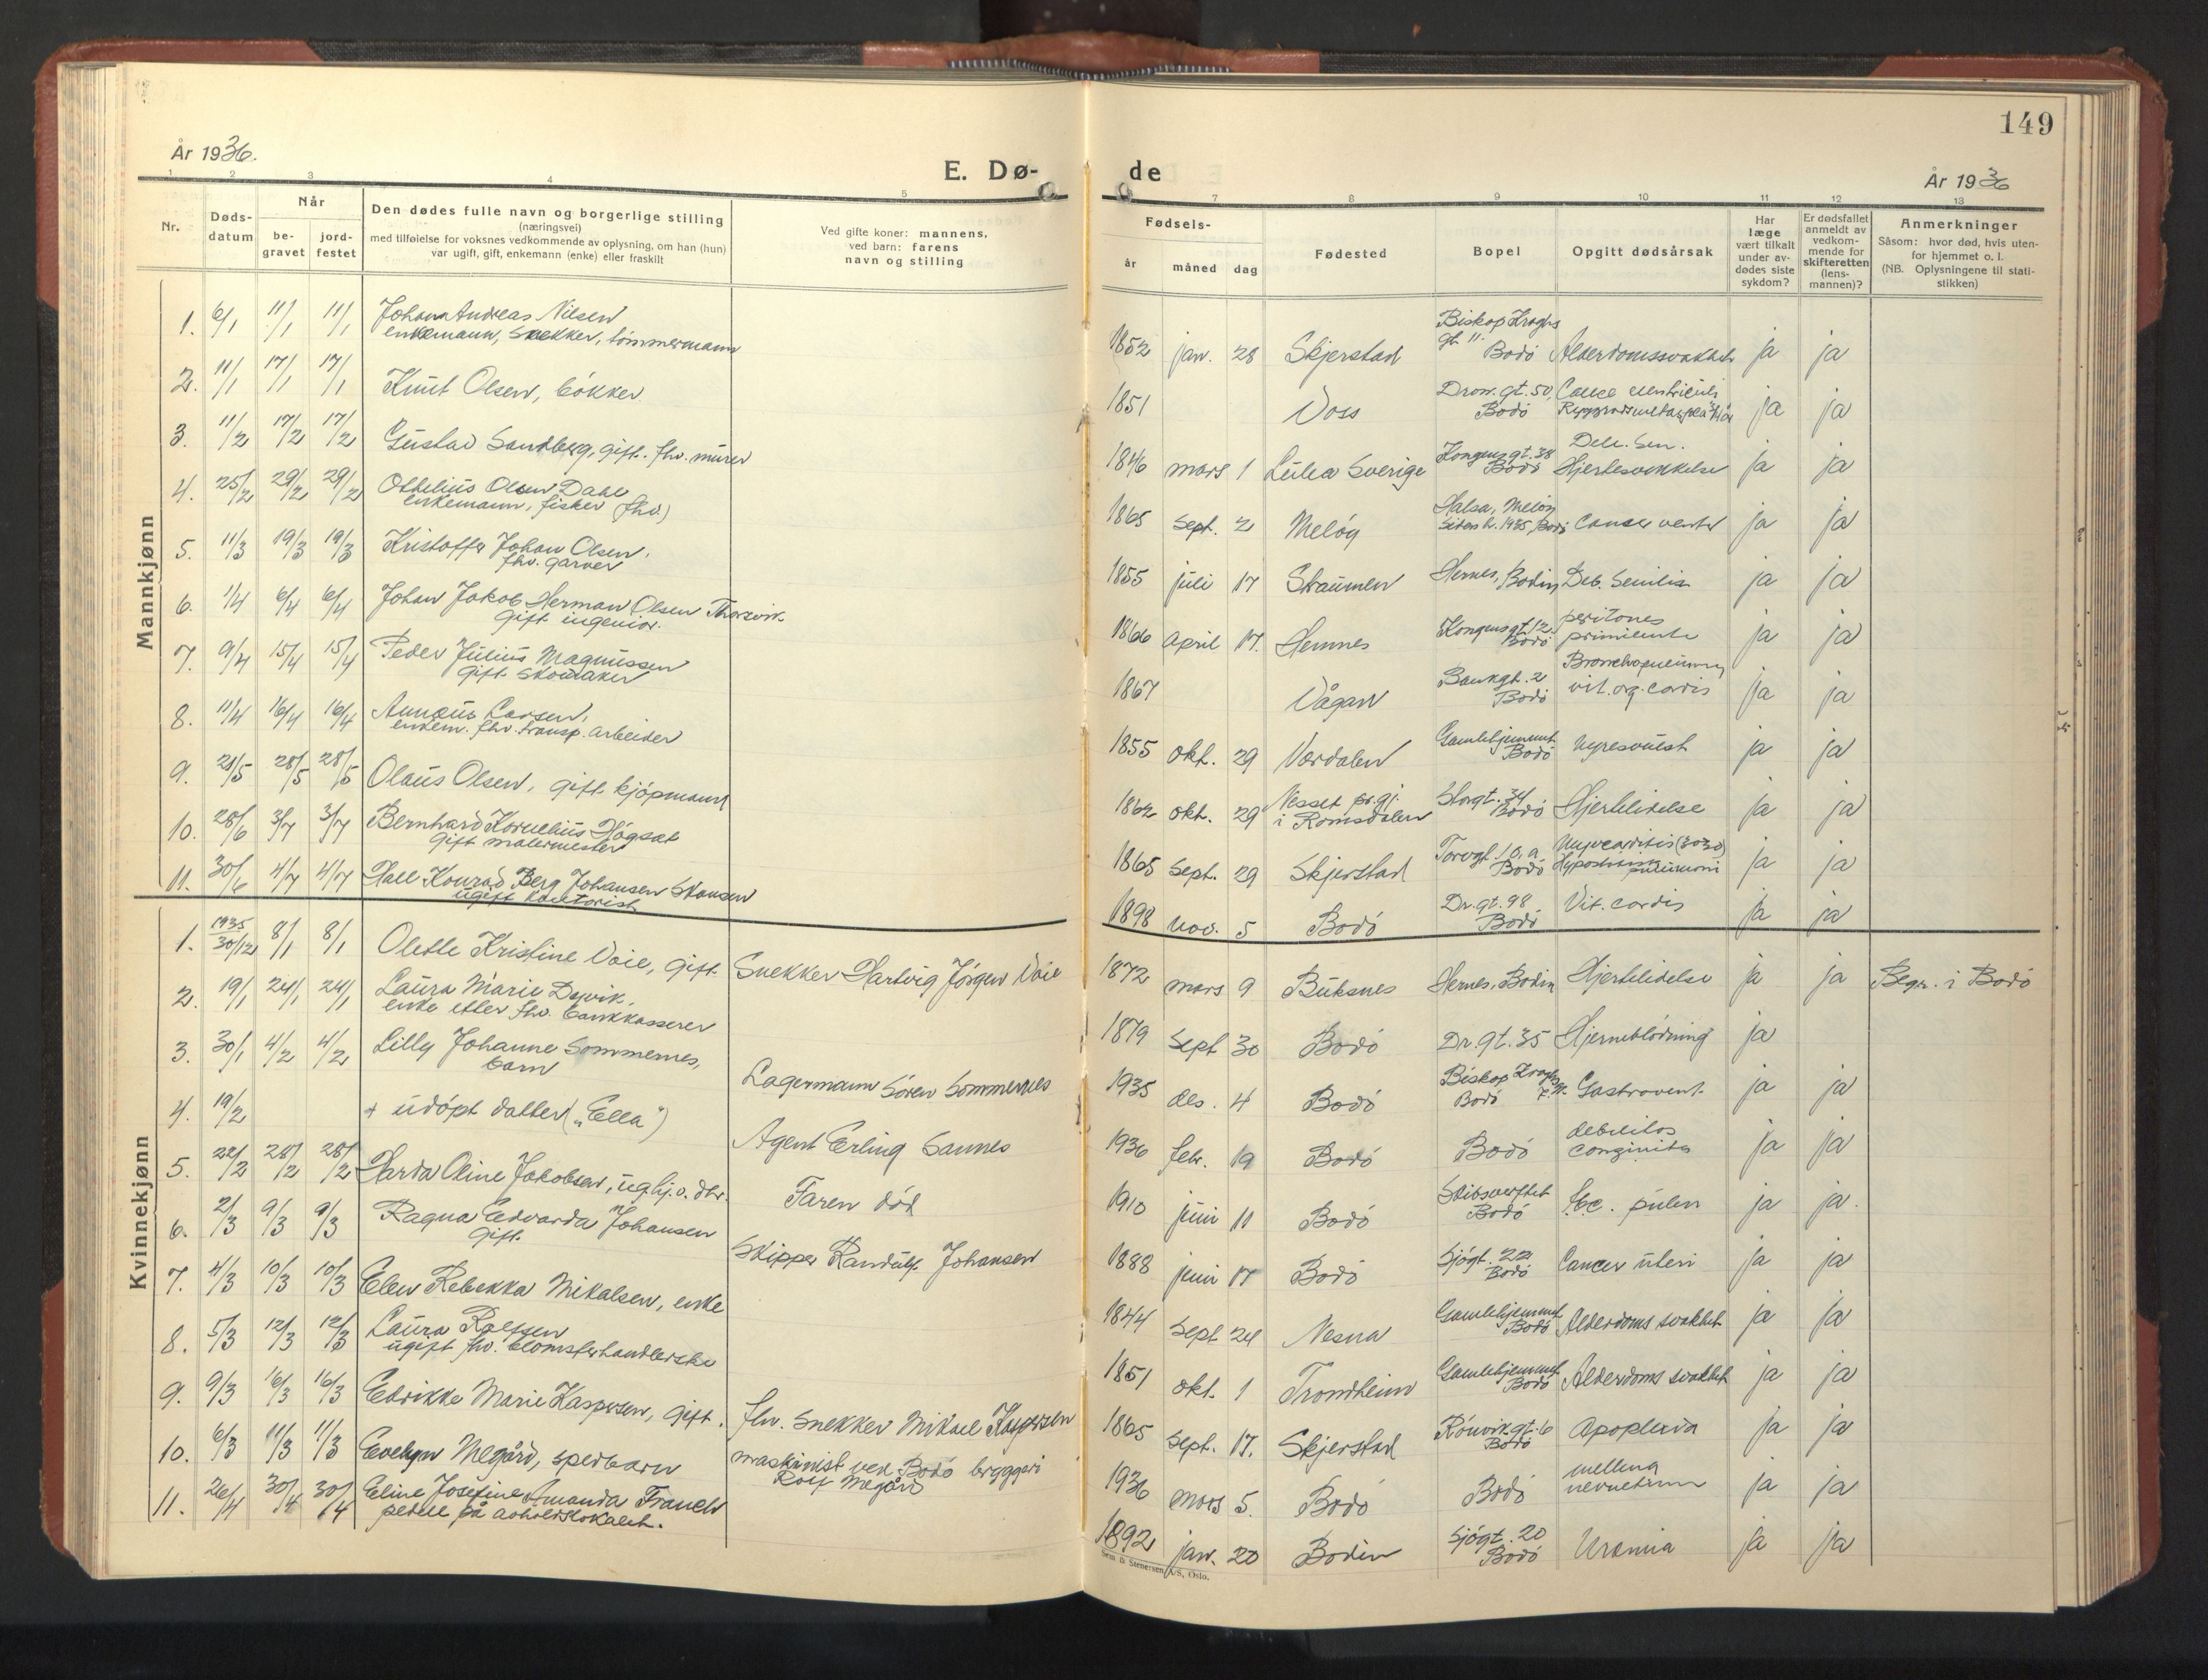 149
År 1936.
E. Dø-
de
År 1936
1 2 3 4 5 7 8 9 10 11 12 13
Nr.
Døds-
datum
Når
be-
gravet
jord-
festet
Den dødes fulle navn og borgerlige stilling
(næringsvei)
med tilføielse for voksnes vedkommende av oplysning, om han (hun)
var ugift, gift, enkemann (enke) eller fraskilt
Ved gifte koner: mannens,
ved barn: farens
navn og stilling
Fødsels-
år måned dag
Fødested
Bopel
Opgitt dødsårsak
Har
læge
vært tilkalt
under av-
dødes siste
sykdom?
Er dødsfallet
anmeldt av
vedkom-
mende for
skifteretten
(lens-
mannen)?
Anmerkninger
Såsom: hvor død, hvis uten-
for hjemmet o. l.
(NB. Oplysningene til stati-
stikken)
Mannkjønn
1. 6/1 11/1 11/1 Johan Andreas Nilsen
enkemann, snekker, tømmermann
1852 jan. 28 Skjerstad Biskop Kroghs
gt. 11. Bodø Alderdomssvakhet ja ja
2. 11/1 17/1 17/1 Knut Olsen, bøkker
1851 Voss Dron. gt. 50, Bodø ja ja
3. 11/2 17/2 17/2 Gustav Sandberg, gift. fhv. murer
1846 mars 1 Lulea Sverige Kongensgt. 38
Bodø Deb. Sen.
Hjertesvekkelse ja ja
4. 25/2 29/2 29/2 Othelius Olsen Dahl
enkemann, fisker (fhv.)
1865 sept. 2 Meløy Halsa, Meløy
Siden h. 1935, Bodø Cancer ventr ja ja
5. 11/3 19/3 19/3 Kristoffer Johan Olsen,
fhv. garver
1855 juli 17 Straumen Hernes, Bodin Deb. Senilis ja ja
6. 1/4 6/4 6/4 Johan Jakob Herman Olsen Thorsvik
gift ingeniør.
1866 april 17. Hemnes Kongensgt. 12.
Bodø ja ja
7. 9/4 15/4 15/4 Peder Julius Magnussen
gift skomaker
1867 Vågan Bankgt. 2
Bodø Bronchopneumoni
vit. org. cordis ja ja
8. 11/4 16/4 16/4 Annæus Larsen,
enkem. fhv. transp. arbeider
1855 okt. 29 Værdalen Gamlehjemmet
Bodø Nyresvulst ja ja
9. 21/5 28/5 28/5 Olaus Olsen, gift kjøpmann
1862 okt. 29 Nesset pr.gj.
i Romsdalen Storgt. 34
Bodø Hjertelidelse ja ja
10. 28/6 3/7 3/7 Bernhard Kornelius Høgset
gift malermester
1865 sept. 29 Skjerstad Torvgt. 10, a
Bodø Myocarditis
Hypostatisk pneumoni ja ja
11. 30/6 4/7 4/7 Hall Konrad Berg Johansen Skansen
ugift kontorist
1898 nov. 5 Bodø Dr. gt. 98
Bodø Vit. cordis ja ja
Kvinnekjønn
1. 1935
30/12 8/1 8/1 Olette Kristine Voie, gift. Snekker Hartvig Jørgen Voie
1872 mars 9 Buksnes Hernes, Bodin Hjertelidelse ja ja Begr. i Bodø
2. 19/1 24/1 24/1 Laura Marie
enke etter fhv. bankkasserer
1879 sept 30 Bodø Dr. gt. 35 Hjerneblødning ja
3. 30/1 4/2 4/2 Lilly Johanne Sommernes,
barn Lagermann Søren Sommernes
1935 des. 4 Bodø Biskop Kroghs
Bodø Gastroent. ja ja
4. 19/2 + udøpt datter („Ella") Agent Erling Sannes
1936 febr. 19 Bodø Bodø debilitas
conginita ja ja
5. 22/2 28/2 28/2 Harda Oline Jakobsen, ug. hj.v. dtr. Faren død
1910 juni 11 Bodø Skibsverftet
Bodø tbc. pulm ja ja.
6. 2/3 9/3 9/3 Ragna Edvarda Johansen
gift. Skipper Randulf Johansen
1888 juni 17 Bodø Sjøgt. 22
Bodø Cancer uteri ja ja
7. 4/3 10/3 10/3 Elen Rebekka Mikalsen, enke
1844 sept 24 Nesna Gamlehjemmet
Bodø Alderdoms svakhet ja ja
8. 5/3 12/3 12/3 Laura Rolfsen
ugift fhv. blomsterhandlerske
1851 okt. 1 Trondheim Gamlehjemmet
Bodø Alderdoms svakhet ja ja
9. 9/3 16/3 16/3 Edrikke Marie Kaspersen, gift. fhv. snekker Mikael Kaspersen
1865 sept. 17. Skjerstad Rønvik gt. 6
Bodø Apoplexia ja ja
10. 6/3 11/3 11/3 Evelyn Megård, spedbarn maskinist ved Bodø bryggeri
Rolf Megård
1936 mars 5. Bodø Bodø ja ja
11. 26/4 30/4 30/4 Eline Josefine Amanda Franch
pedell på avholdslokalet.
1892 jan. 20 Bodin Sjøgt. 20
Bodø Uremia ja ja
Sem & Stenersen A/S, Oslo.